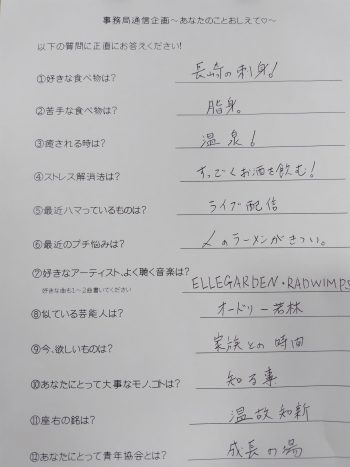 事務局通信企画～あなたのことおしえて♡～
以下の質問に正直にお答えください!
①好きな食べ物は? 長崎の刺身!
②苦手な食べ物は? 脂身。
③癒される時は? 温泉!
④ストレス解消法は? すっごくお酒を飲む!
⑤最近ハマっているものは? ライブ配信
⑥最近のプチ悩みは? 〆のラーメンがきつい。
⑦好きなアーティスト、よく聴く音楽は? ELLEGARDEN・RADWIMPS
好きな曲も1～2曲書いてください
⑧似ている芸能人は? オードリー若林
⑨今、欲しいものは? 家族との時間
⑩あなたにとって大事なモノ、コトは? 知る事
⑪座右の銘は? 温故知新
⑫あなたにとって青年協会とは? 成長の場